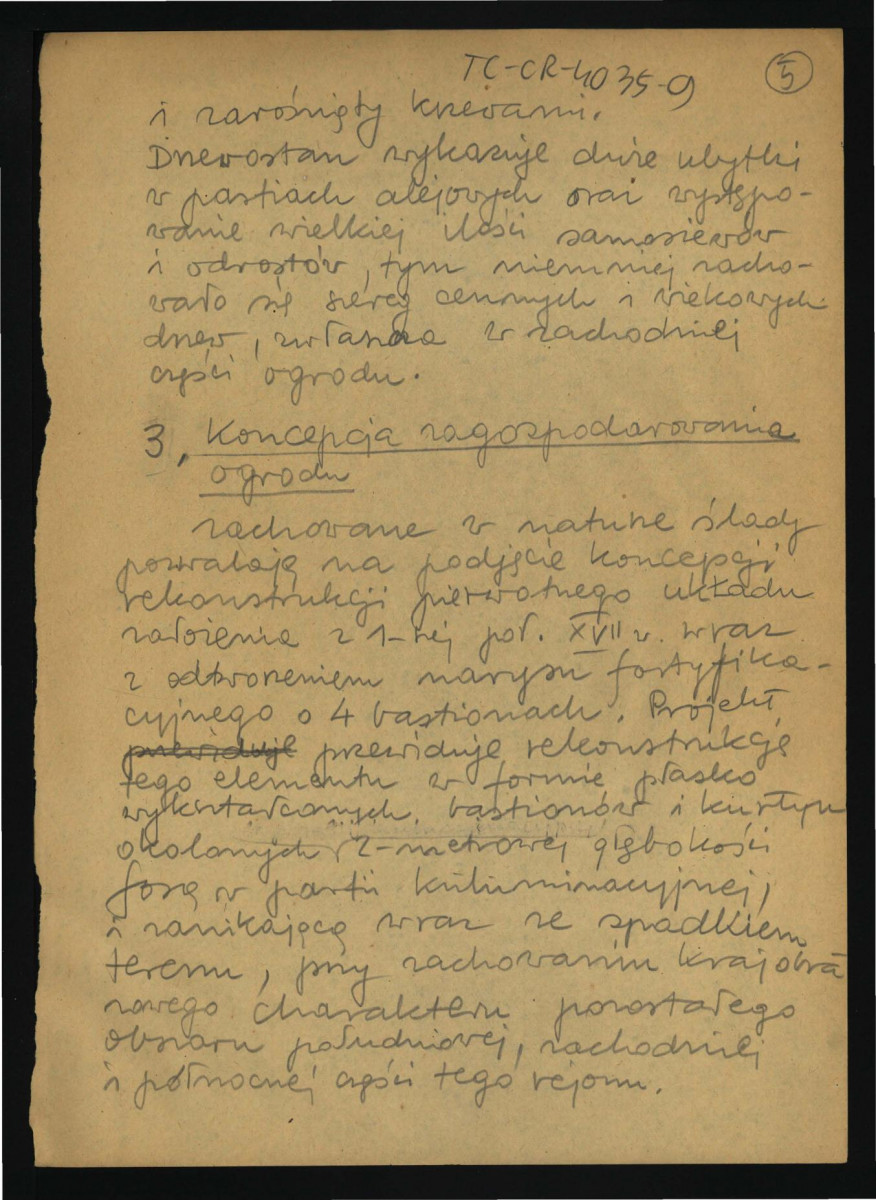 TC-CR-4035-9 5
i zarośnięty krzewami.
Drzewostan wykazuje duże ubytki
w partiach alejowych oraz występo-
wanie wielkiej ilości samosiewów
i odrostów, tym niemniej zacho-
wało się szereg cennych i wiekowych
drzew, zwłaszcza w zachodniej
części ogrodu.
3, Koncepcja zagospodarowania
ogrodu
Zachowane w naturze ślady
pozwalają na podjęcie koncepcji
rekonstrukcji pierwotnego układu
założenia z 1-szej poł. XVII w. wraz
z odtworzeniem narysu fortyfika-
cyjnego o 4 bastionach. Projekt
przewiduje przewiduje rekonstrukcję
tego elementu w formie płasko
wykształconych bastionów i kurtyn
okolonych 2-metrowej głębokości
fosą w partii kulminacyjnej,
i zanikającą wraz ze spadkiem
terenu, przy zachowaniu krajobra
zowego charakteru pozostałego
obszaru południowej, zachodniej
i północnej części tego rejonu.